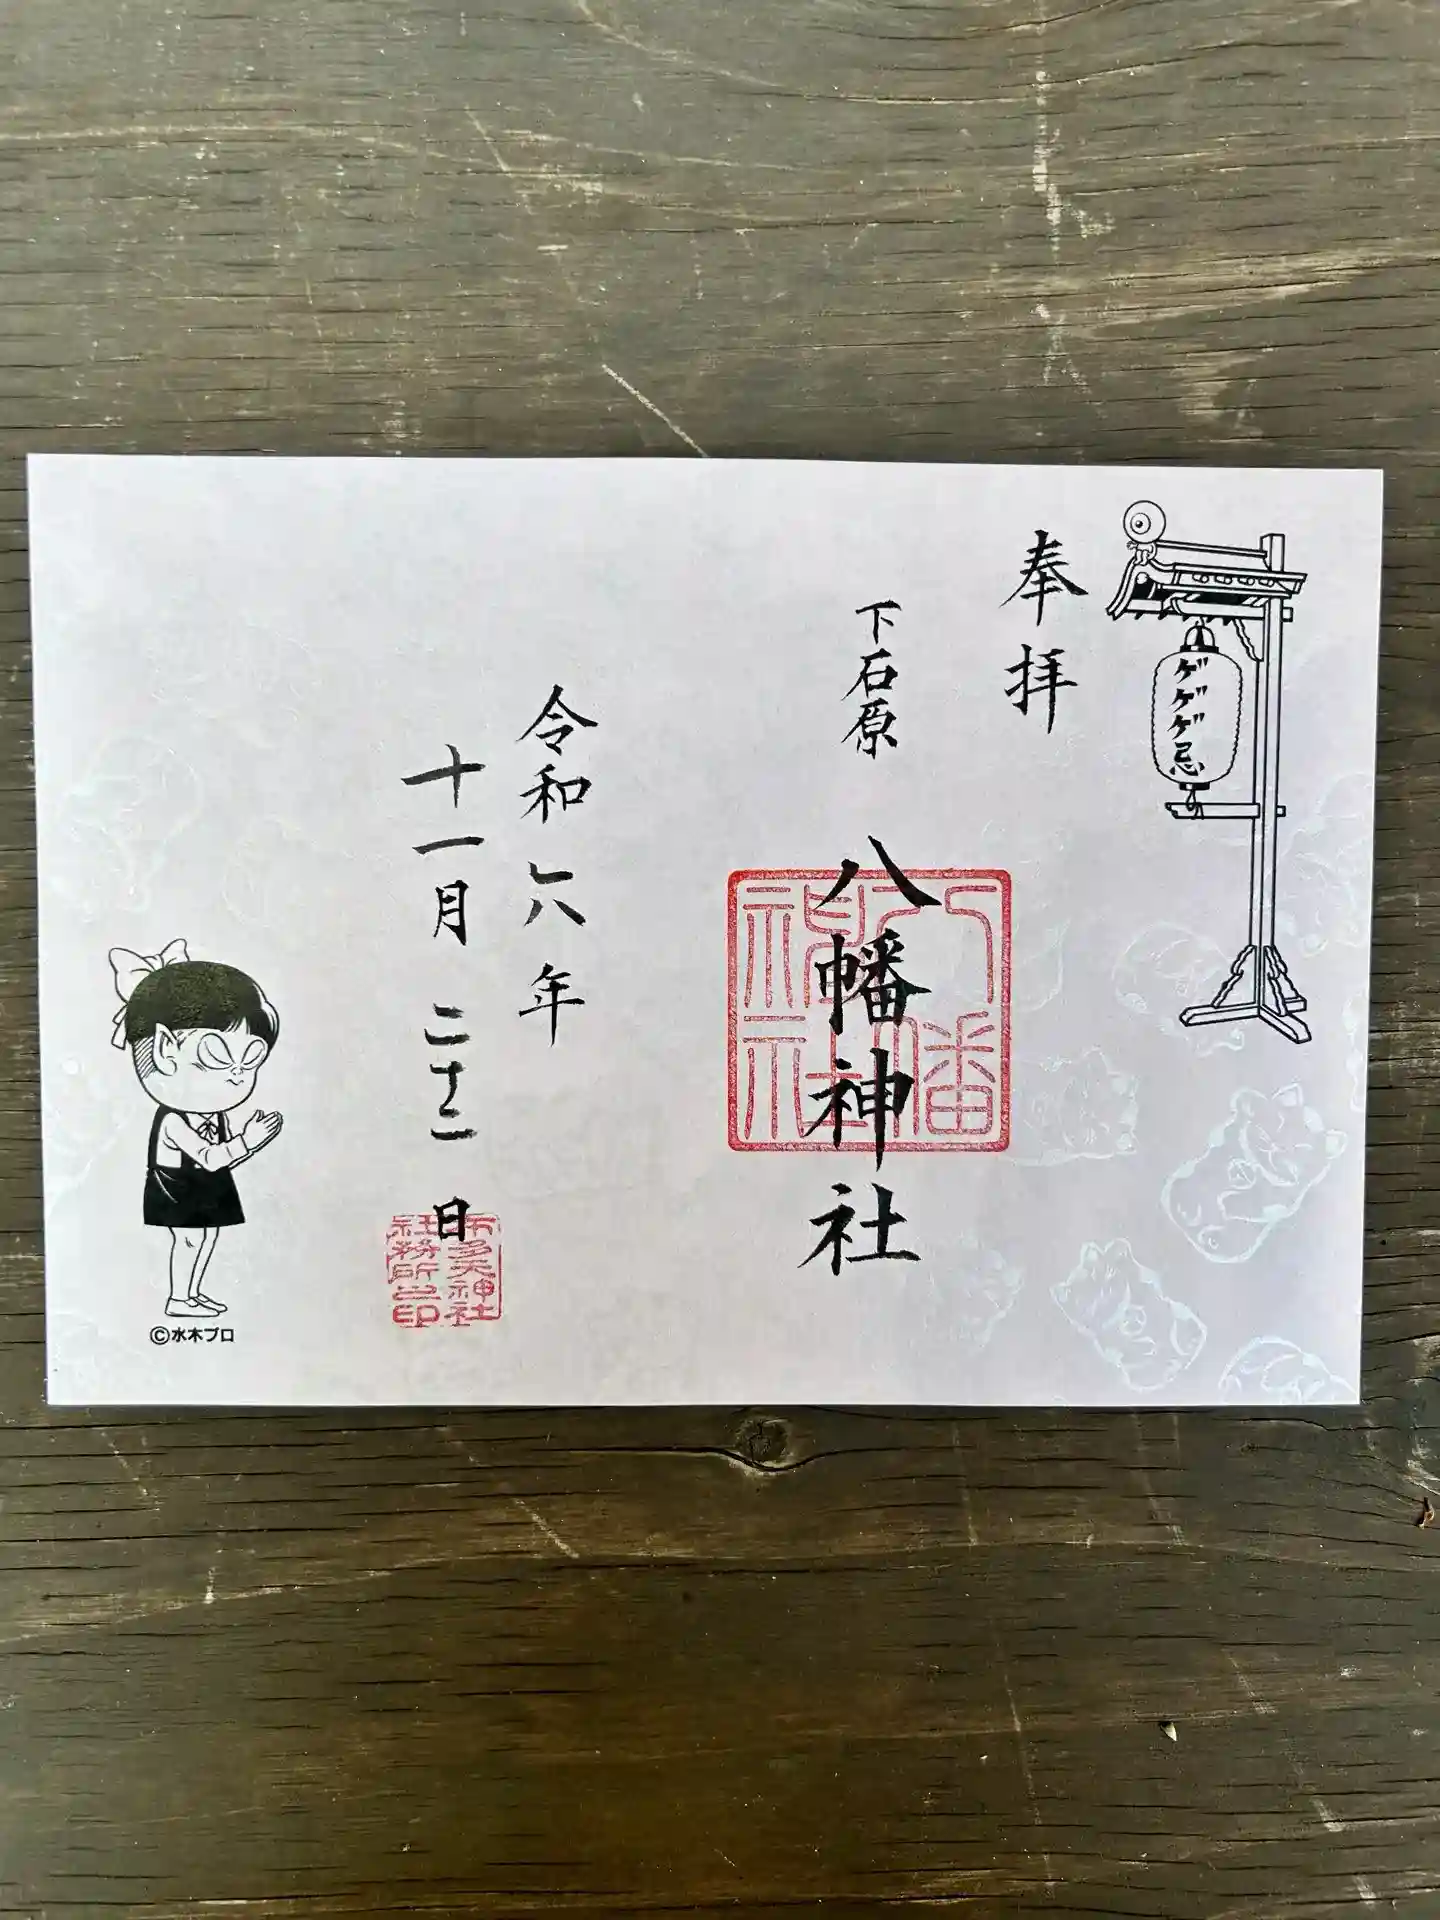 ゲゲゲ忌
奉拝
下石原
八幡神社
八幡神社
令和六年
十一月二十二日
布多天神社
社務所之印
©水木プロ